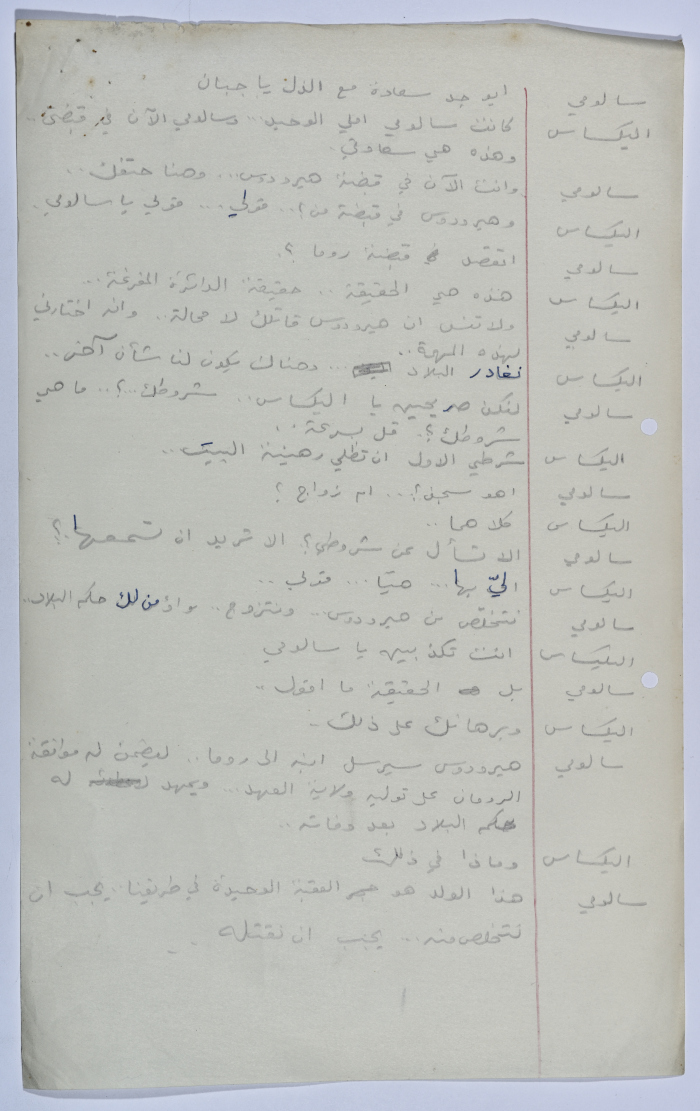 سالومي ايوجد سعادة مع الذل يا جبان
اليكساس كانت سالومي املي الوحيد... وسالومي الآن في قبضتي..
وهذه هي سعادتي.
سالومي وانت الآن في قبضة هيرودوس... وهنا حتفك..
اليكساس وهيرودوس في قبضة من؟... قولي... قولي يا سالومي.
سالومي اتقصد قبضة روما ؟.
اليكساس هذه هي الحقيقة .. حقيقة الدائرة المفرغة...
سالومي ولا تنس ان هيرودوس قاتلك لا محالة.. وانه اختارني
لهذه المهمة..
اليكساس نغادر البلاد ... وهناك يكون لنا شأن آخر..
سالومي لنكن صريحين يا اليكساس.. شروطك...؟.. ما هي
شروطك؟. قل بسرعة..
اليكساس شرطي الاول ان تظلي رهينة البيت..
سالومي اهو سجن؟... ام زواج ؟
اليكساس كلاهما..
سالومي الا تسأل عن شروطي؟. الا تريد ان تسمعها.؟
اليكساس اليّ بها... هيّا... قولي..
سالومي نتخلّص من هيرودوس... ونتزوج.. من لك حكم البلاد..
اليكساس انت تكذبين يا سالومي
سالومي بل الحقيقة ما اقول..
اليكساس وبرهانك على ذلك..
سالومي هيرودوس سيرسل ابنه الى روما.. ليضمن له موافقة
الرومان على توليه ولاية العهد... ويمهد له
حكم البلاد بعد وفاته..
اليكساس وماذا في ذلك
سالومي هذا الولد هو العقبة الوحيدة في طريقنا.. يجب ان
نتخلص منه... يجب ان نقتله..